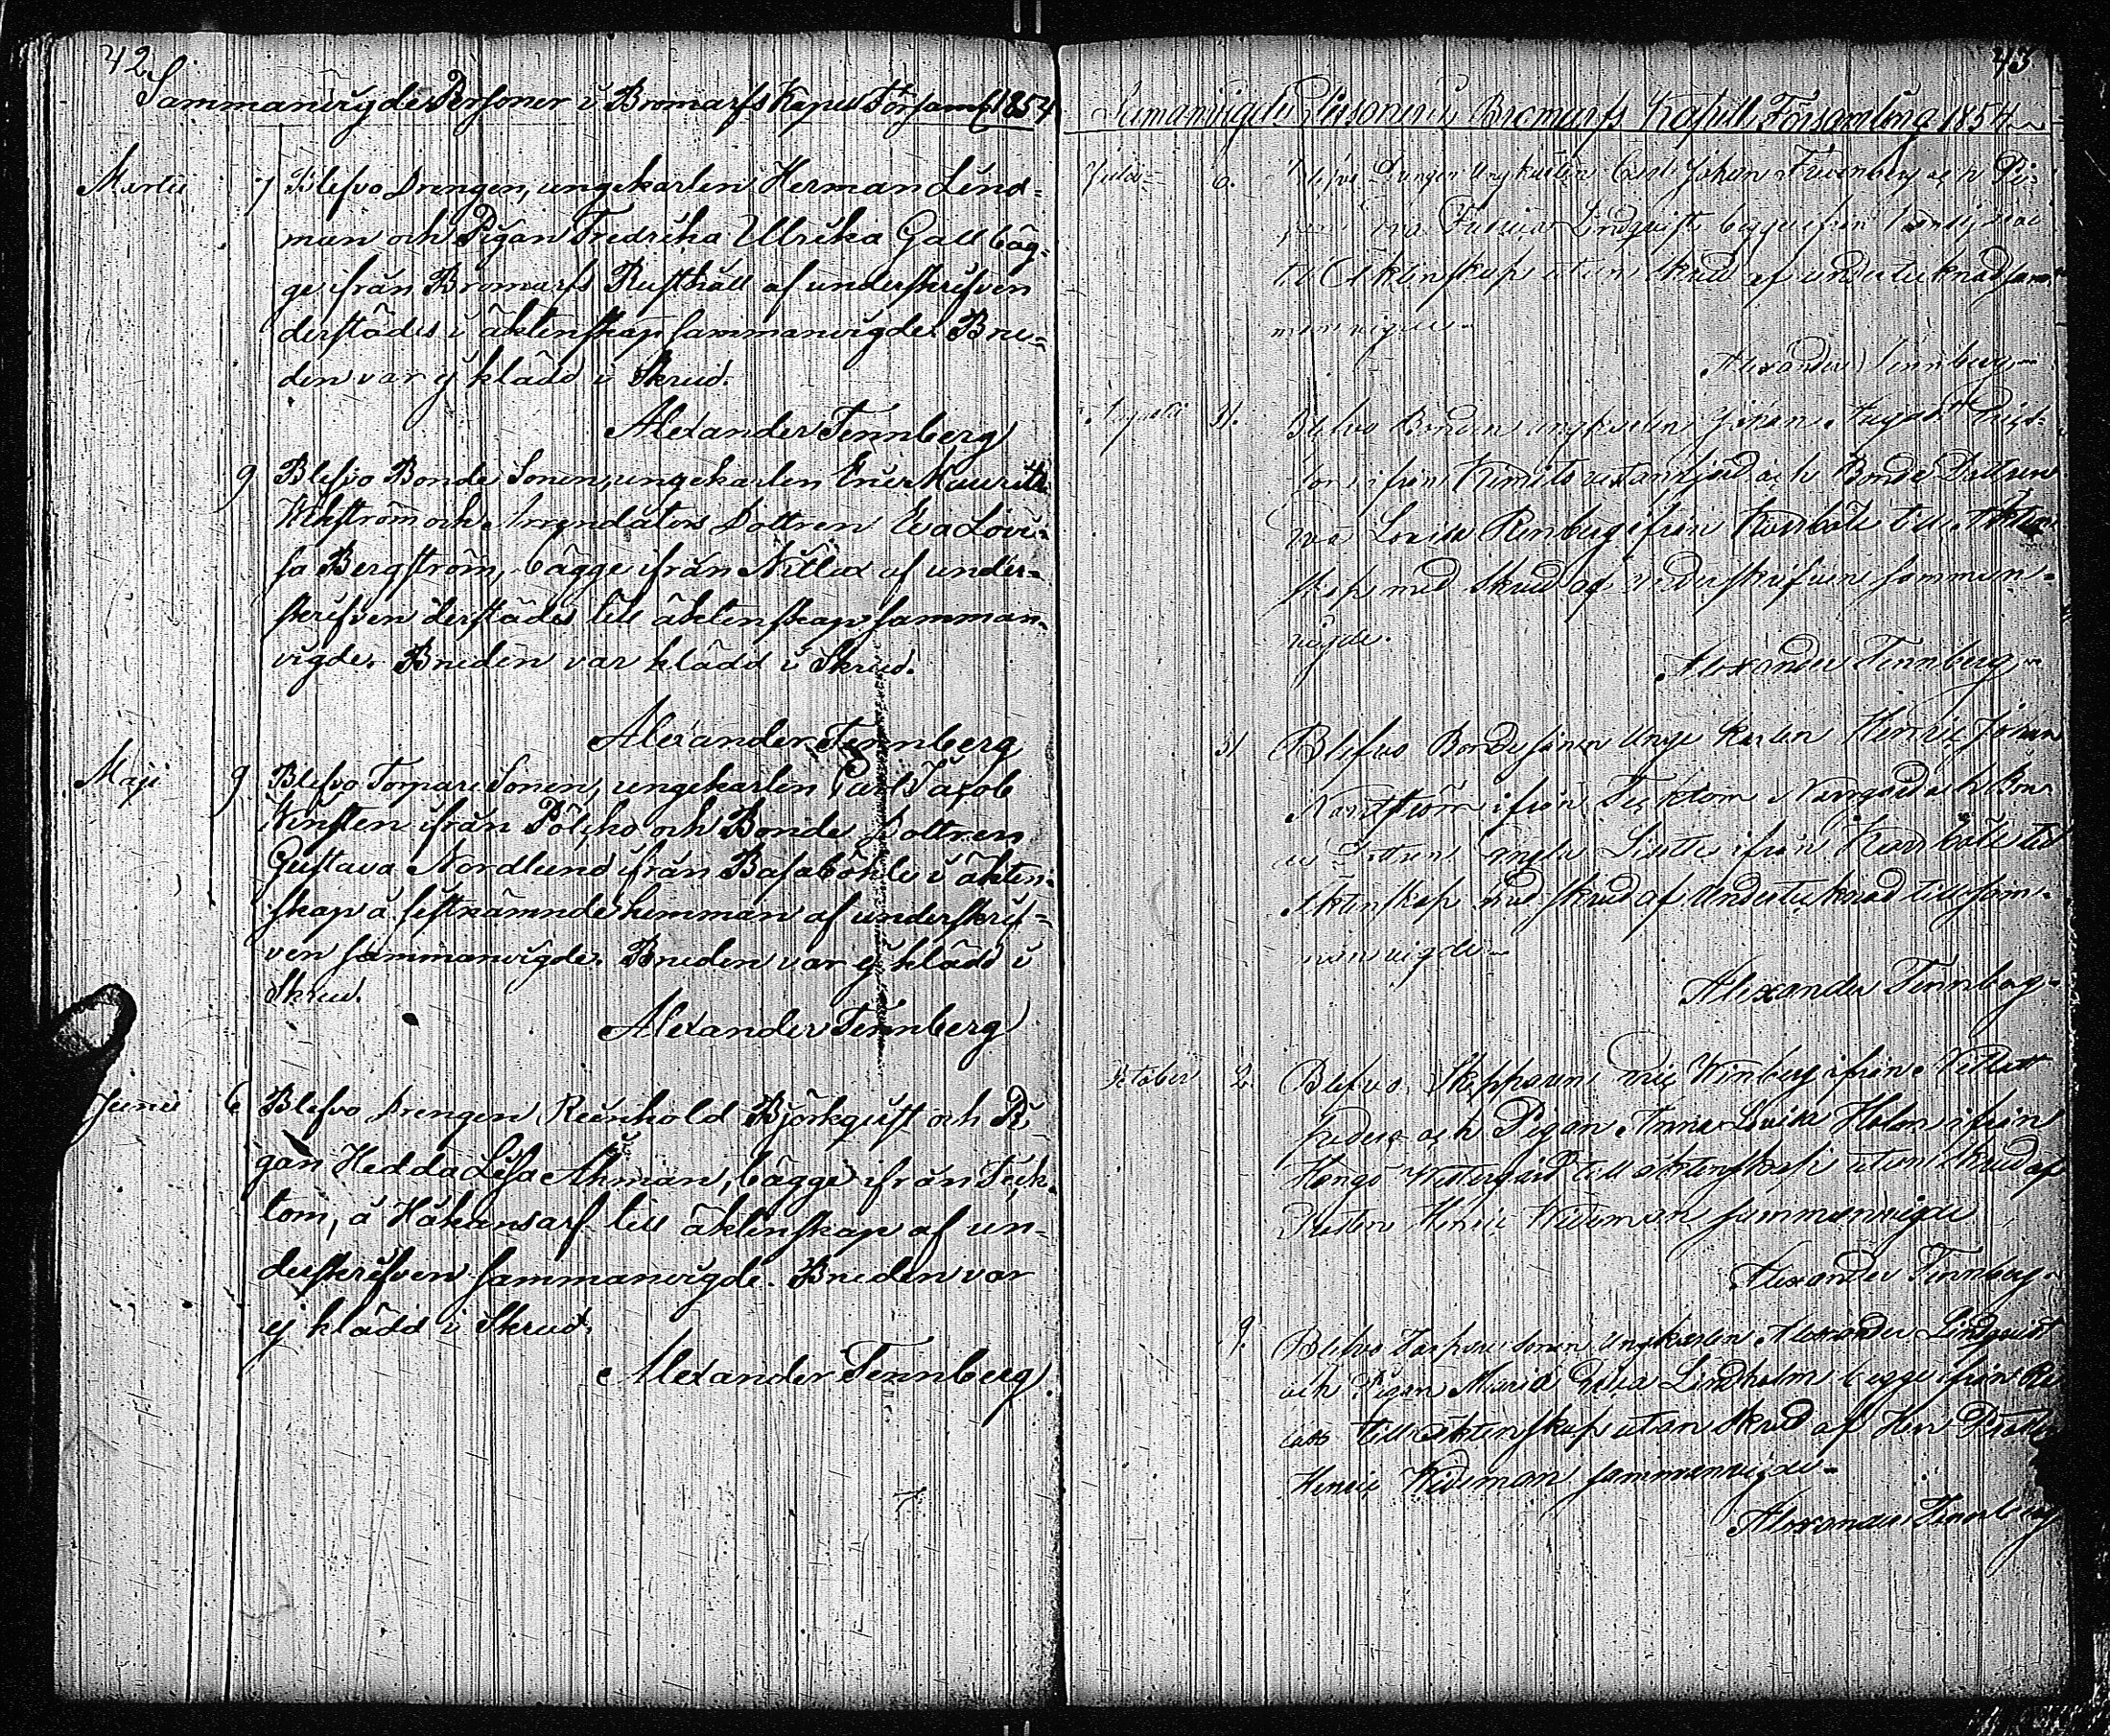 42
Sammanvigde Personer i Bromarfs Kapell Församl 1854
Martii 7 Blefvo Drengen, ungekarlen Herman Lind=
man och Pigan Fredrika Ulrika Gall båg=
ge ifrån Bromarfs Rusthåll af underskrifven
derstädes i äktenskap sammanvigde. Bru=
den var ej klädd i Skrud.
Alexander Tennberg
9 Blefvo Bonde Sonen, ungekarlen Eric Maurits
Wikström och Arrendators Dottren Eva Lovi=
sa Bergström, bägge ifrån Nitlax af under=
skrifven derstädes till äktenskap samman=
vigde. Bruden var klädd i Skrud.
Alexander Tennberg
Maji 9 Blefvo Torpare Sonen, ungekarlen Carl Jacob
ifrån och Bonde Dottren
Gustava Nordlund ifrån Basaböhle i äkten=
skap å sistnämnde hemman af underskrif=
ven sammanvigde. Bruden var ej klädd i
Skrud.
Alexander Tennberg
Junii 6 Blefvo Drengen Reinhold Björkqvist och Pi
gan Hedda Lisa Åhman, bägge ifrån Teck
tom, å Håkansarf till äktenskap af un=
derskrifven sammanvigde. Bruden var
ej klädd i Skrud.
Alexander Tennberg
43
Sammanvigde Personer i Bromarfs Kapell Församling 1854
6. Blefvo Drengen Ungkarlen Carl Johan och Pi=
Lindqvist begge ifrån
till Äktenskap utan skrud af undertecknad sam=
manvigde
Alexander Tennberg
Augusti 31. Blefvo Bonden ungkarlen Johan August
ifrån Kimito och Bonde Dottren
Eva Lovisa Renberg ifrån Karsböle till Äkten
skap med skrud af underskrifven samman=
vigde.
Alexander Tennberg
31 Blefvo Bondesonen Unge karlen Henric Johan
Nordström ifrån Tecktom Norrgård och Bon=
de Dottren ifrån Karsböle till
Äktenskap med skrud af Undertecknad till sam=
manvigde
Alexander Tennberg
October 2. Blefvo Skepparen Winberg ifrån
och Pigan Anna Lovisa Holm ifrån
Hangö Westergård till äktenskap utan skrud af
Henric Wideman sammanvigde
Alexander Tennberg
9. Blefvo Torpare sonen Ungkarlen Alexander Lindqvist
och Pigan Maria Lindholm begge ifrån
till äktenskap utan skrud af Herr
Henric Wideman sammanvigde
Alexander Tennberg